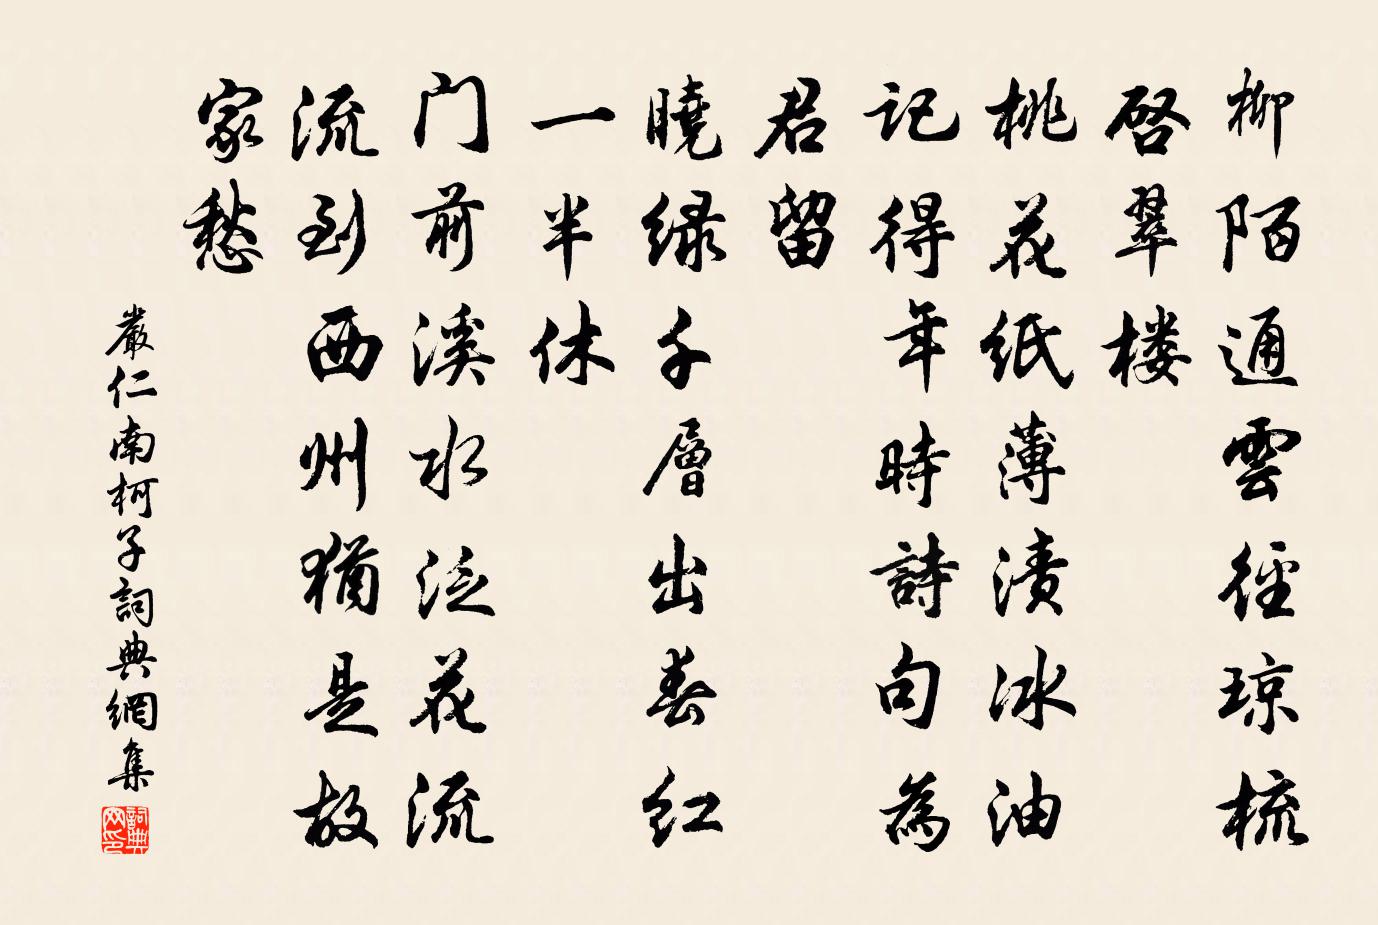 柳陌通雲徑琼梳
啓翠楼
桃花紙薄漬冰油
记得年時詩句為
君留
曉绿千層出春红
一半休
门前溪水泛花流
流到西州猶是故
家愁
嚴仁南柯子詞典網集
詞典网印